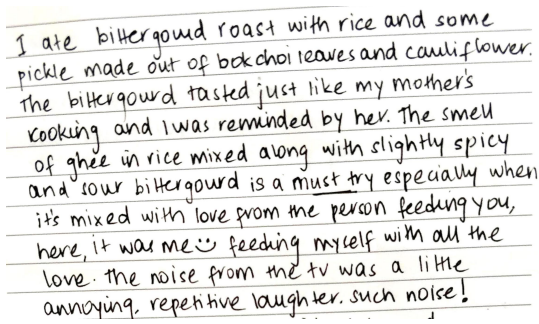 I ate bittergourd roast with rice and some
pickle made out of bokchoi leaves and cauliflower.
The bittergourd tasted just like my mother's
cooking and I was reminded by her. The smell
of ghee in rice mixed along with slightly spicy
and sour bittergourd is a must try especially when
it's mixed with love from the person feeding you,
here, it was me☺ feeding myself with all the
love. The noise from the tv was a little
annoying, repetitive laughter. such noise!